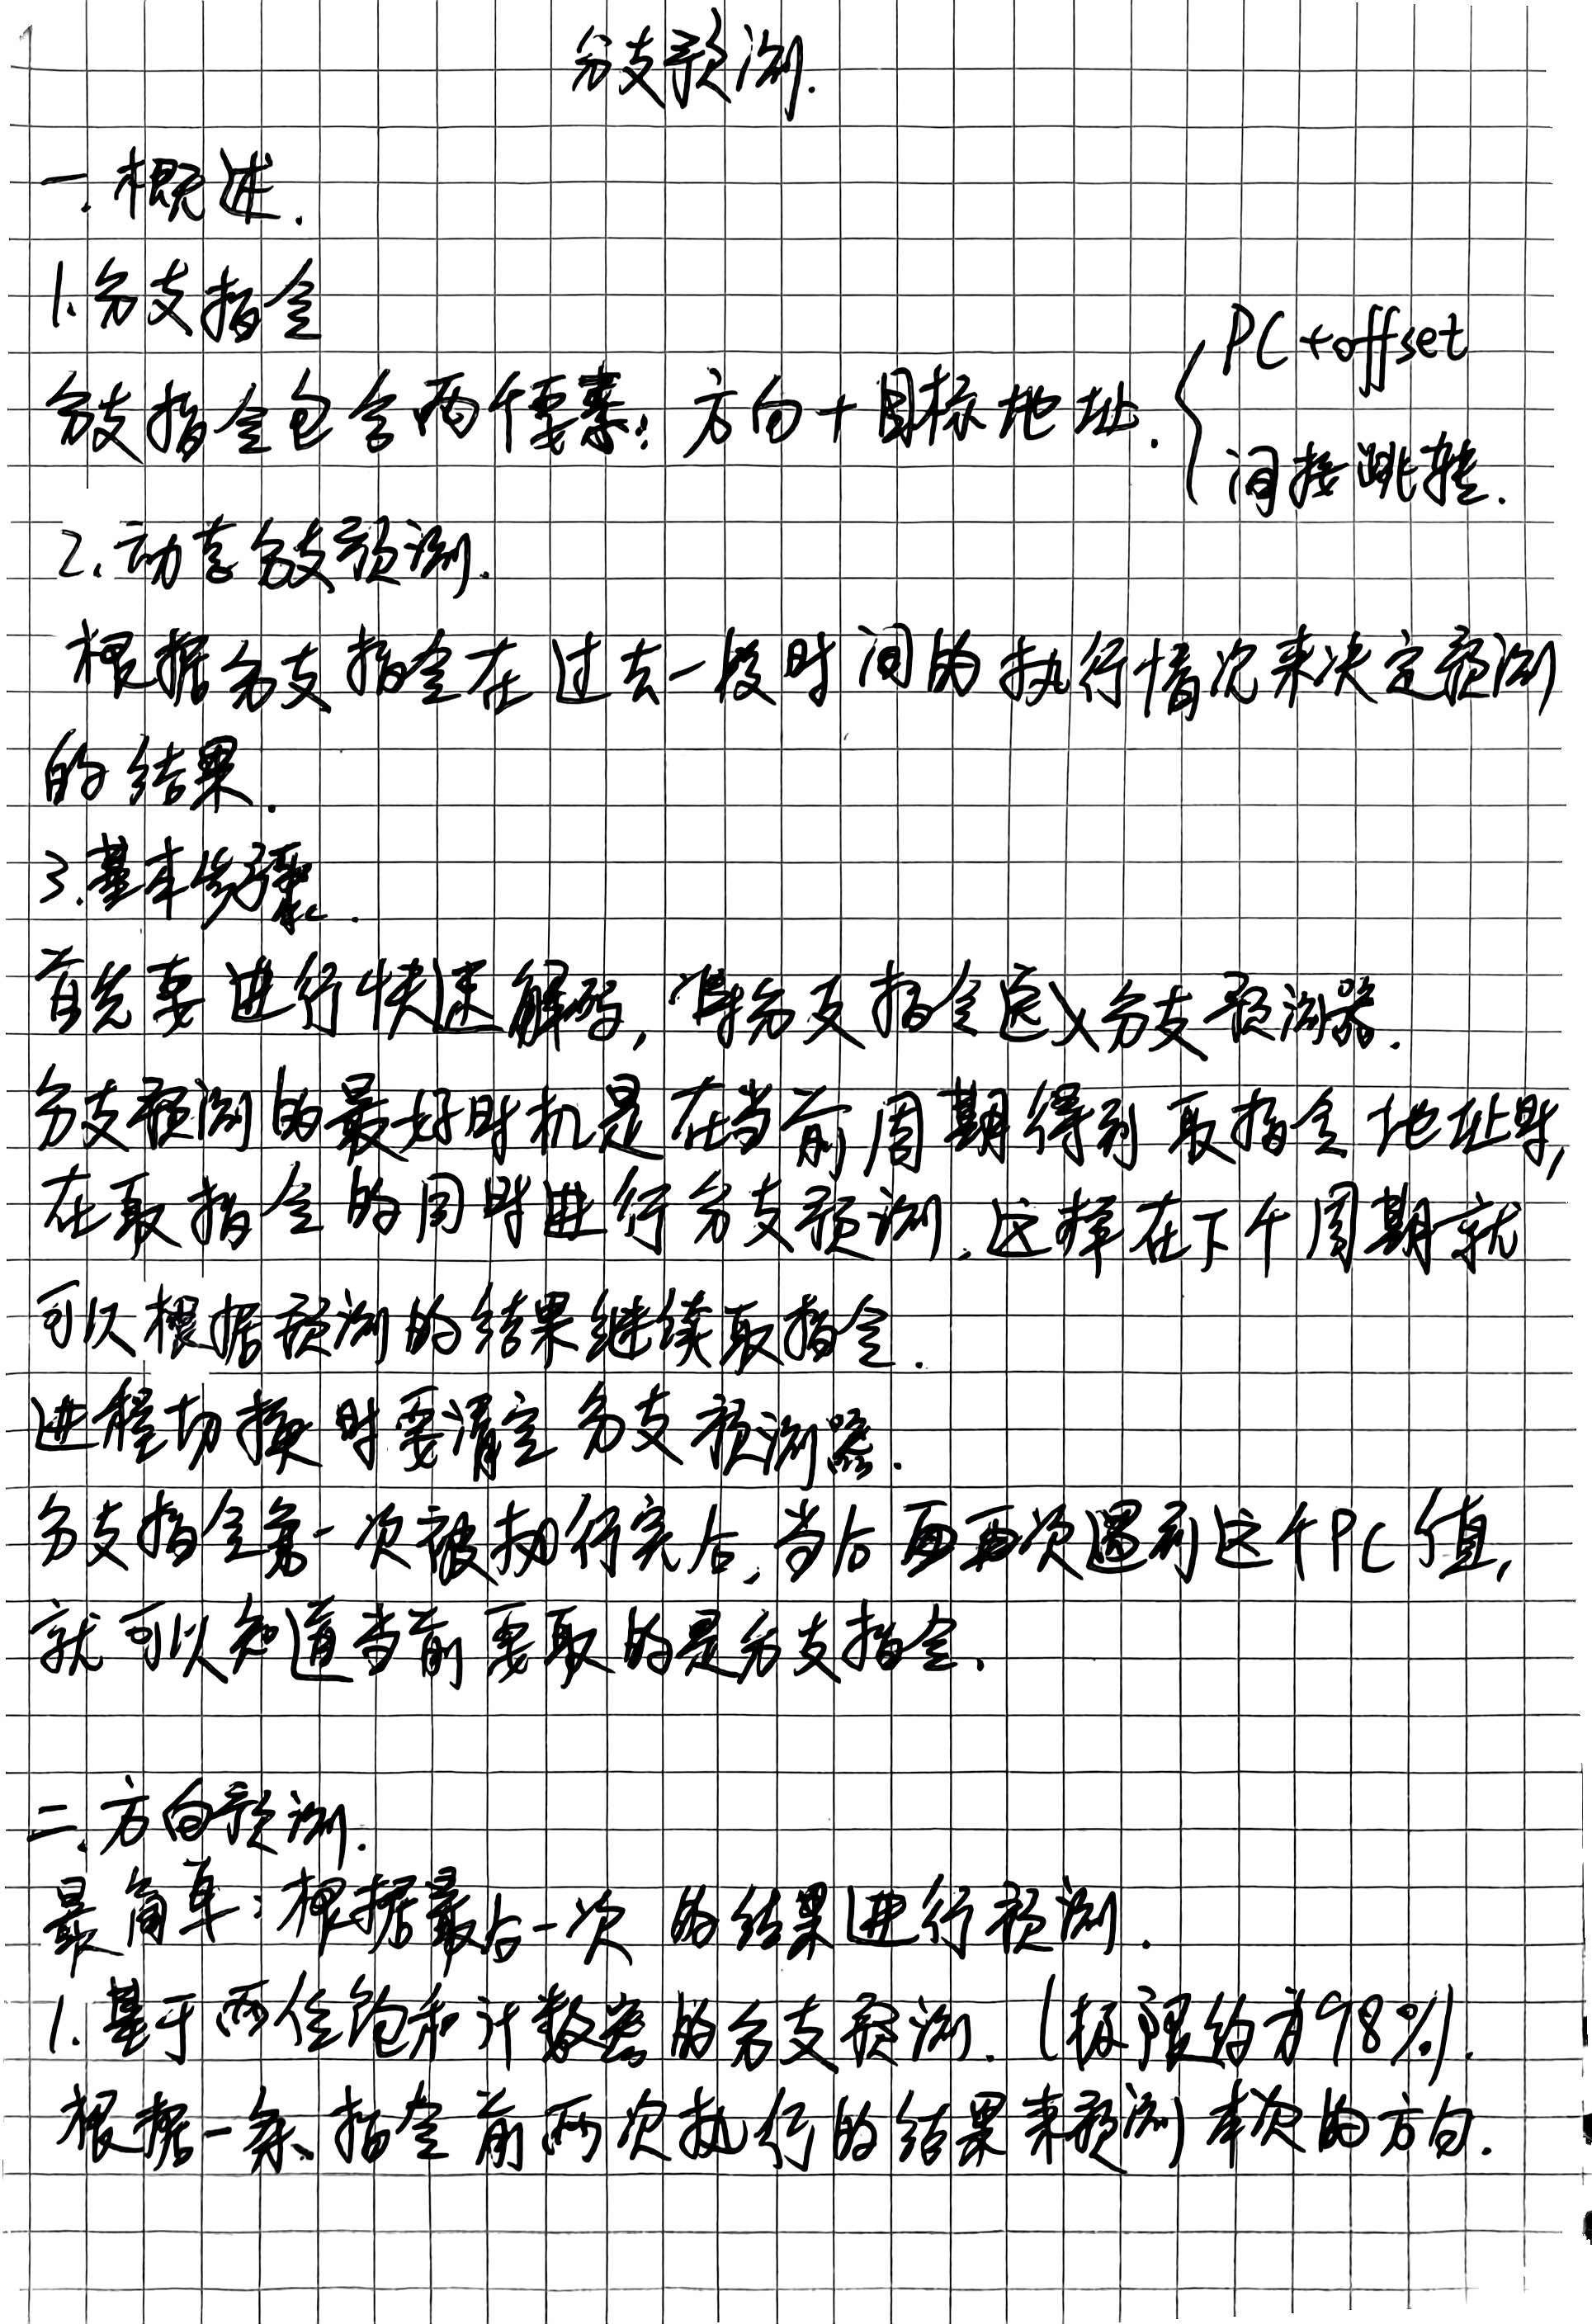 分支预测.
一.概述.
1.分支指令
分支指令包含两个要素:方向+目标地址. { PC+offset
间接跳转.
2.动态分支预测.
根据分支指令在过去一段时间的执行情况来决定预测
的结果.
3.基本步骤.
首先要进行快速解码,将分支指令送入分支预测器.
分支预测的最好时机是在当前周期得到取指令地址时,
在取指令的同时进行分支预测,这样在下个周期就
可以根据预测的结果继续取指令.
进程切换时要清空分支预测器.
分支指令第一次被执行完后,当后面再次遇到这个PC值,
就可以知道当前要取的是分支指令.
二.方向预测.
最简单:根据最后一次的结果进行预测.
1.基于两位饱和计数器的分支预测.(极限约为98%).
根据一条指令前两次执行的结果来预测本次的方向.